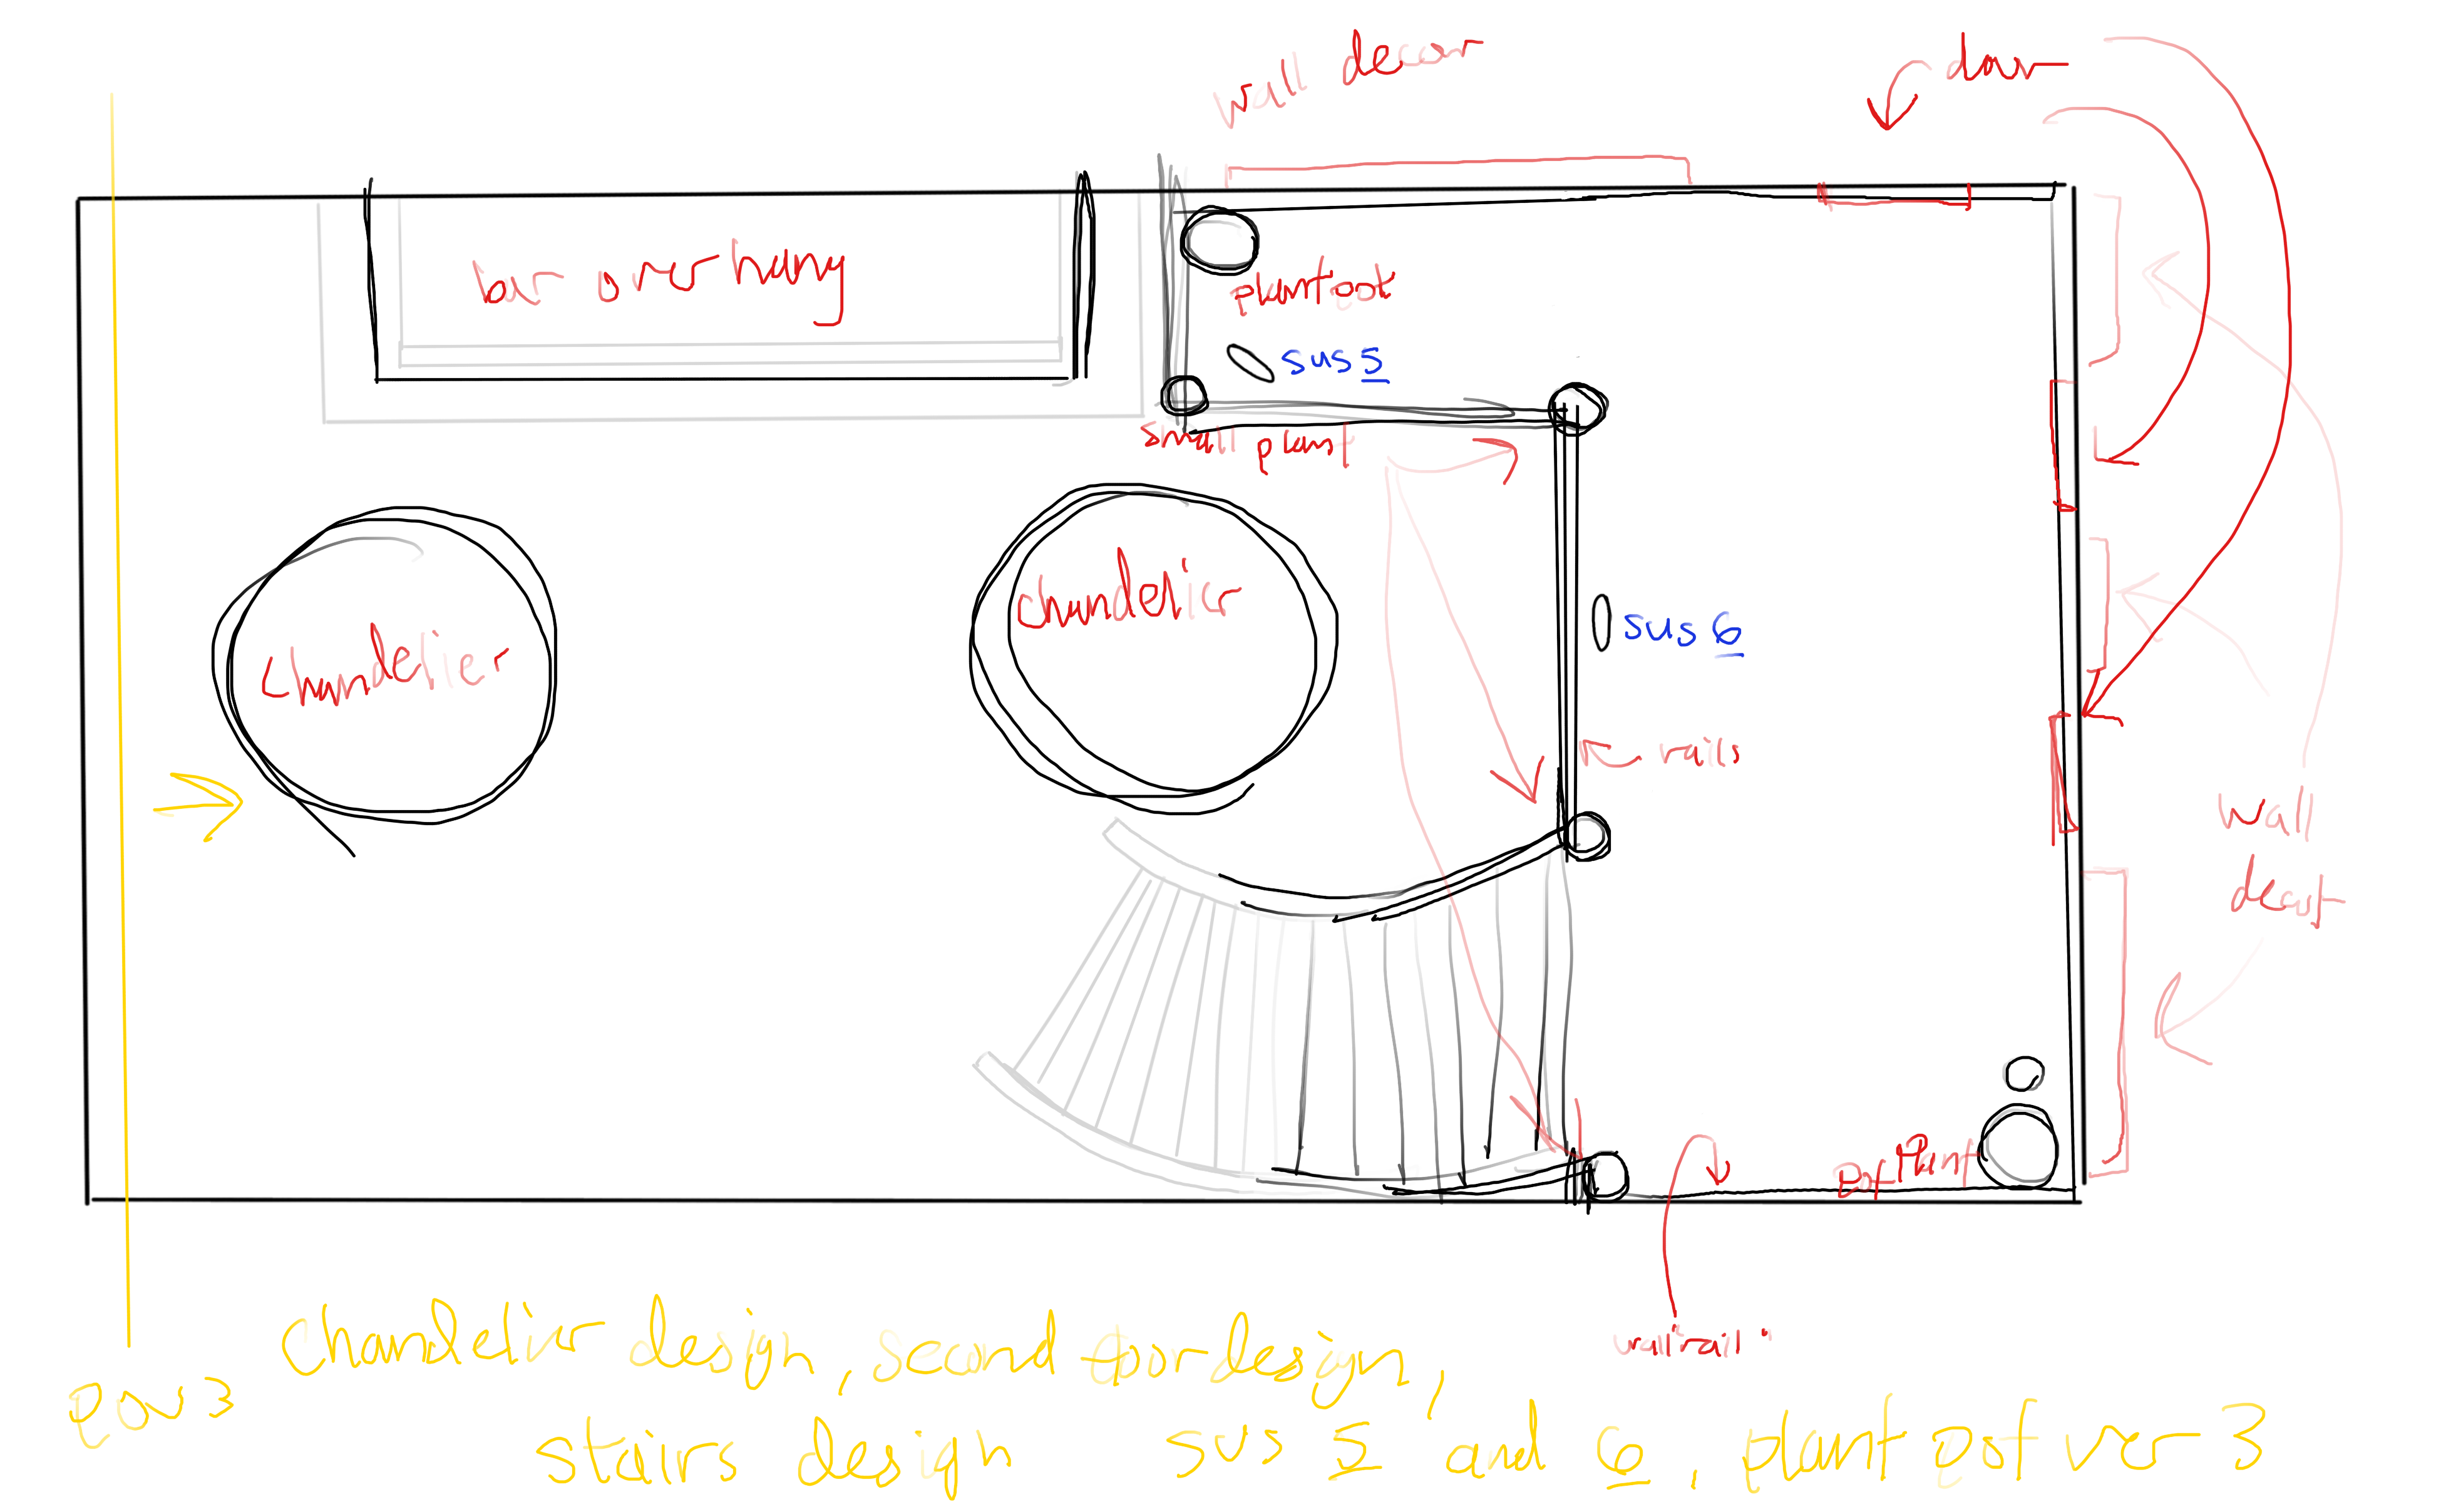 wall decor
door
bar overhang
plantpot
sus 5
small plant
chandelier
chandelier
sus 6
rails
wall
decor
pot Plant
wallrail
pov 3
chandelier design, second floor design,
stairs design sus 5 and 6, plant pot ver 3